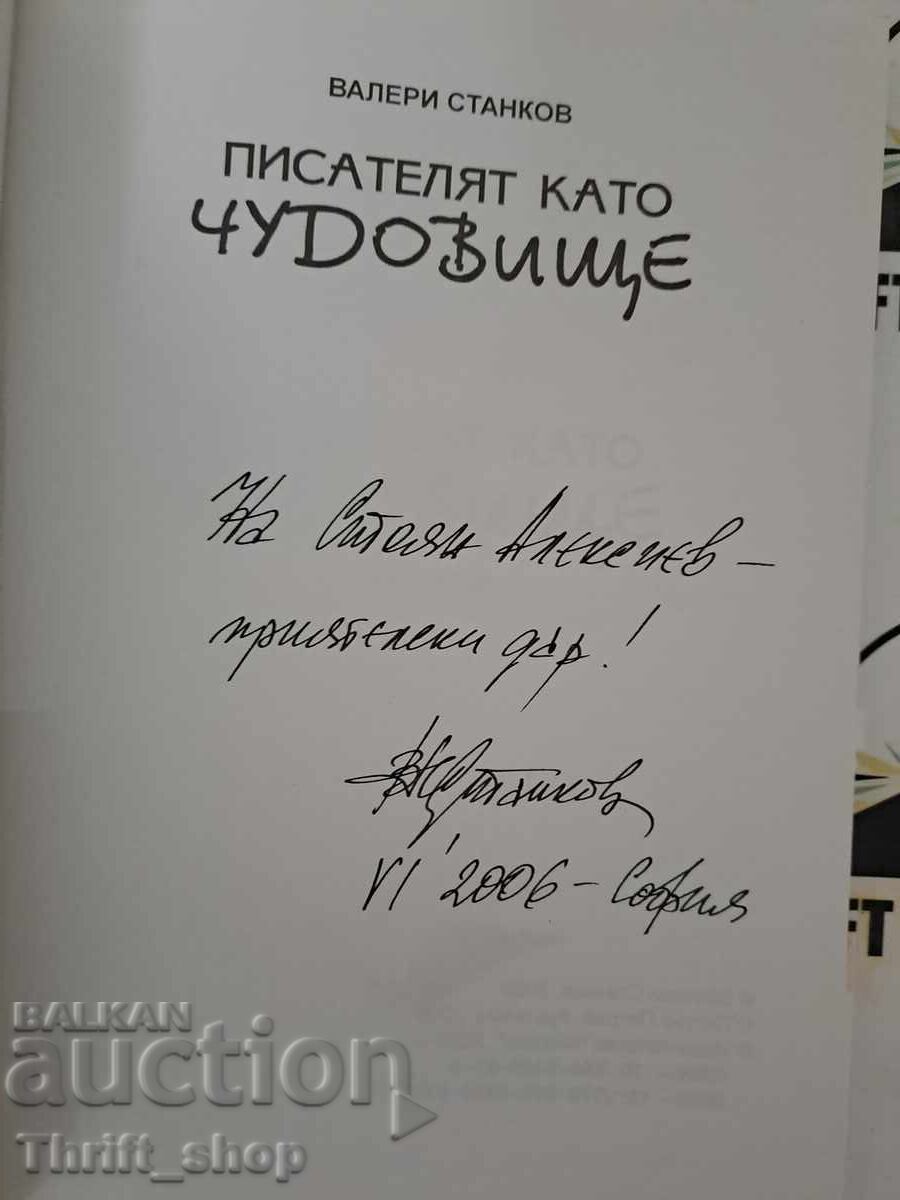 ВАЛЕРИ СТАНКОВ
ПИСАТЕЛЯТ КАТО
ЧУДОВИЩЕ
На Стоян Алексиев –
приятелски дар!
ВСтанков
VI' 2006 – София
FT
FT
BALKAN
auction
Thrift_shop